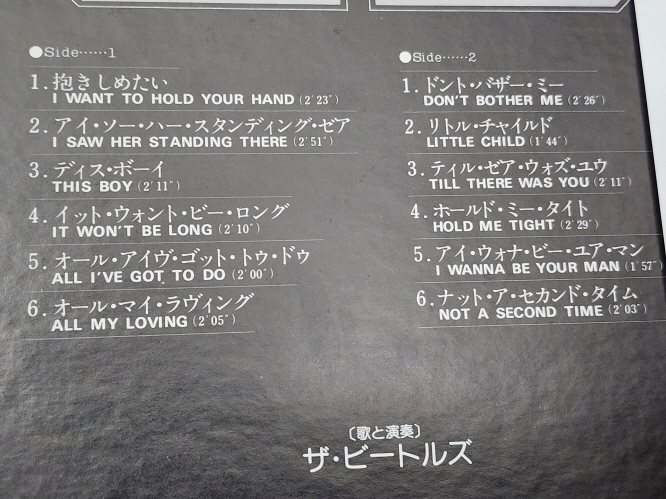 ●Side……1
1.抱きしめたい
I WANT TO HOLD YOUR HAND (2′23″)
2.アイ・ソー・ハー・スタンディング・ゼア
I SAW HER STANDING THERE (2′51″)
3.ディス・ボーイ
THIS BOY (2′11″)
4.イット・ウォント・ビー・ロング
IT WON'T BE LONG (2′10″)
5.オール・アイヴ・ゴット・トゥ・ドゥ
ALL I'VE GOT TO DO (2′00″)
6.オール・マイ・ラヴィング
ALL MY LOVING (2′05″)
●Side……2
1.ドント・バザー・ミー
DON'T BOTHER ME (2′26″)
2.リトル・チャイルド
LITTLE CHILD (1′44″)
3.ティル・ゼア・ウォズ・ユウ
TILL THERE WAS YOU (2′11″)
4.ホールド・ミー・タイト
HOLD ME TIGHT (2′29″)
5.アイ・ウォナ・ビー・ユア・マン
I WANNA BE YOUR MAN (1′57″)
6.ナット・ア・セカンド・タイム
NOT A SECOND TIME (2′03″)
〔歌と演奏〕
ザ・ビートルズ